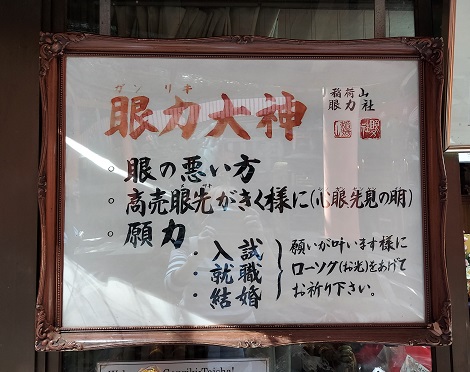 ガンリキ
眼力大神
稲荷山
眼力社
。眼の悪い方
。商売眼先がきく様に(心眼先見の明)
。願力
・入試
・就職
・結婚
願いが叶います様に
ローソク(お光)をあげて
お祈り下さい。